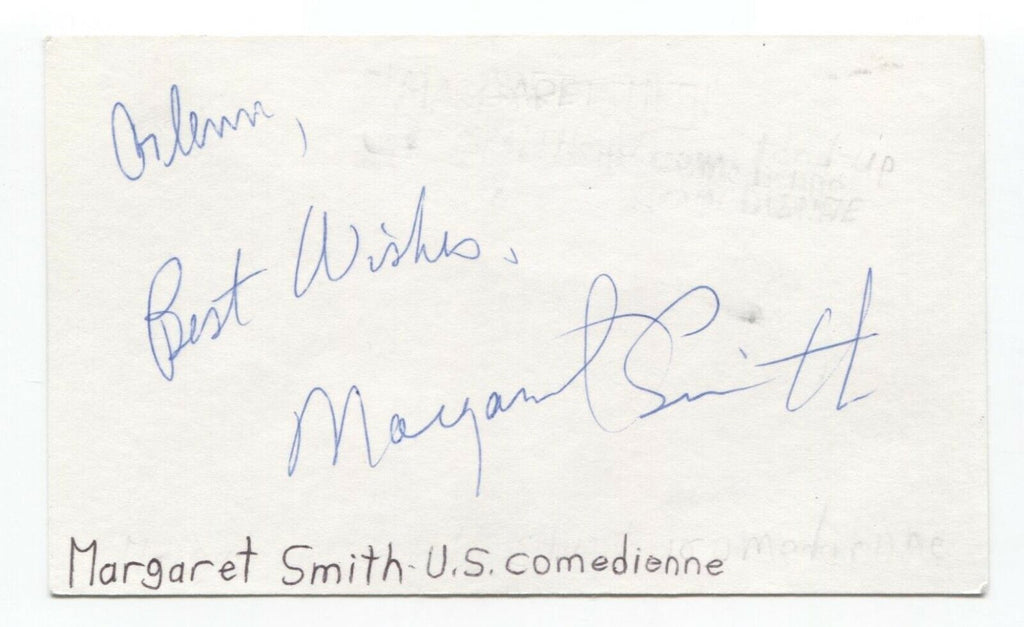 Arlenn,
Best Wishes.
Margaret Smith
Margaret Smith - U.S. comedienne